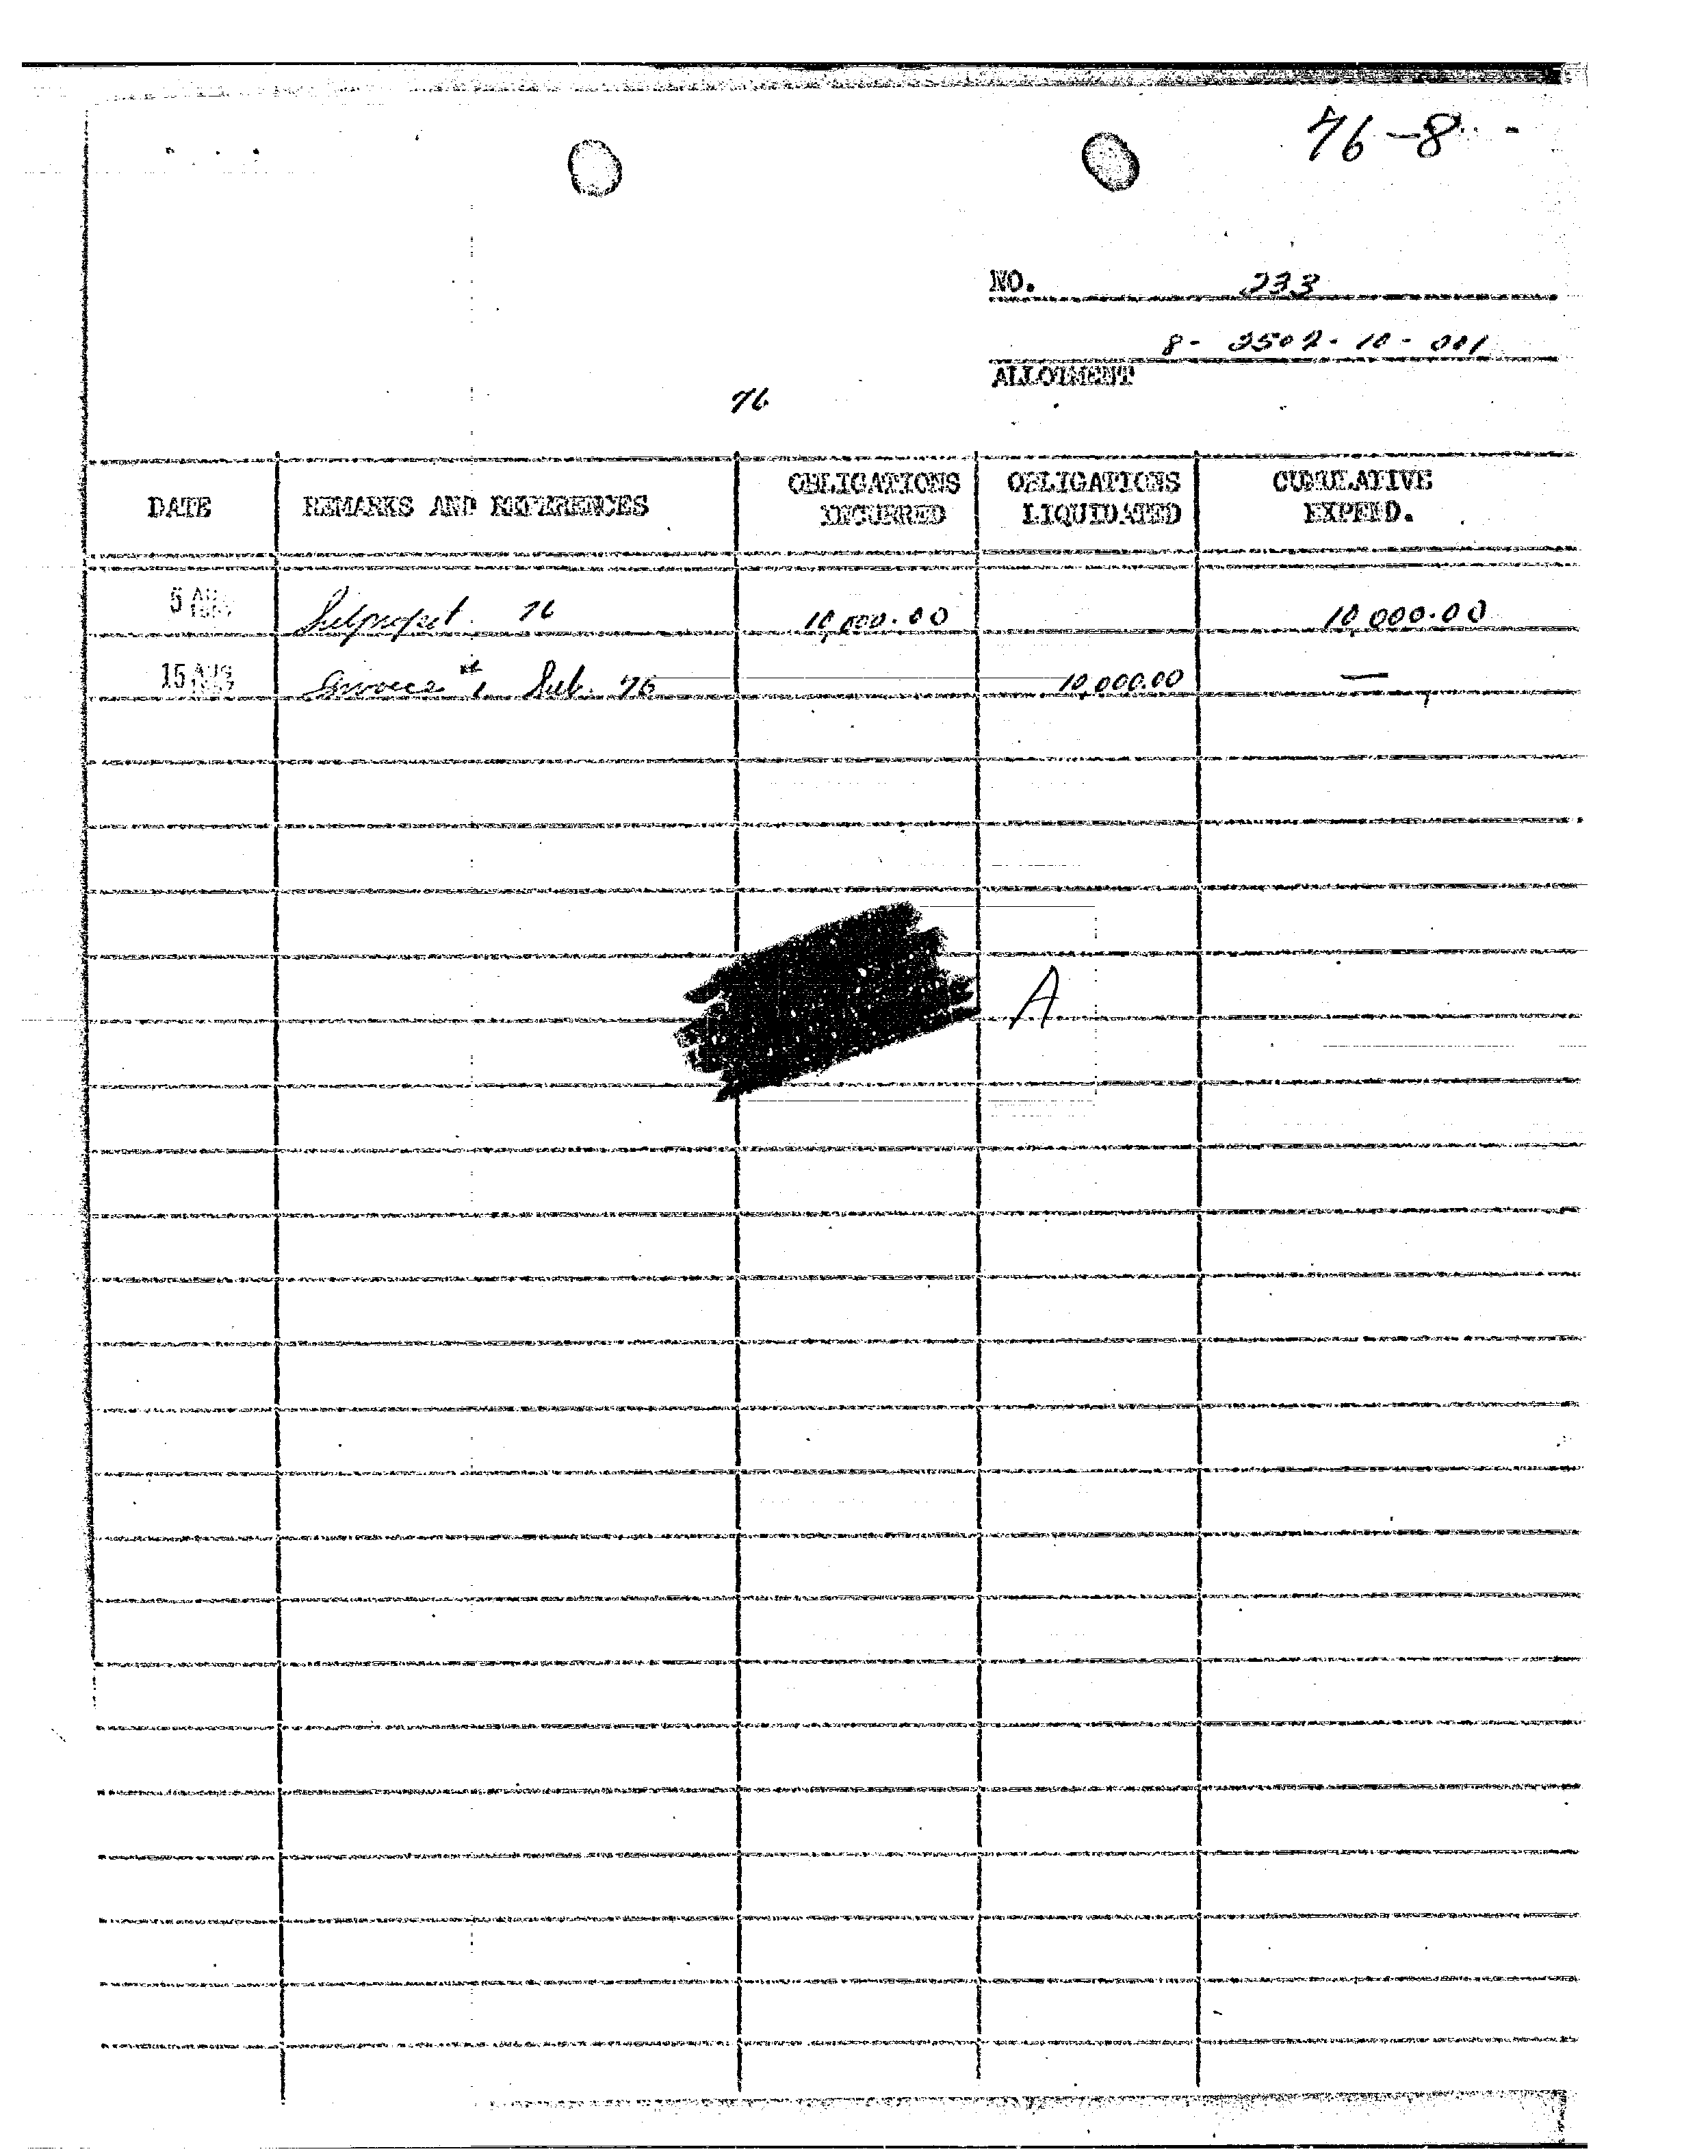 76-8
NO. 233
8- 2502-10-001
ALLOTMENT
76
DATE REMARKS AND REFERENCES OBLIGATIONS INCURRED OBLIGATIONS LIQUIDATED CUMULATIVE EXPEND.
5 AUG Subproject 76 10,000.00 10,000.00
15 AUG Invoice #1 Sub. 76 10,000.00 —
A